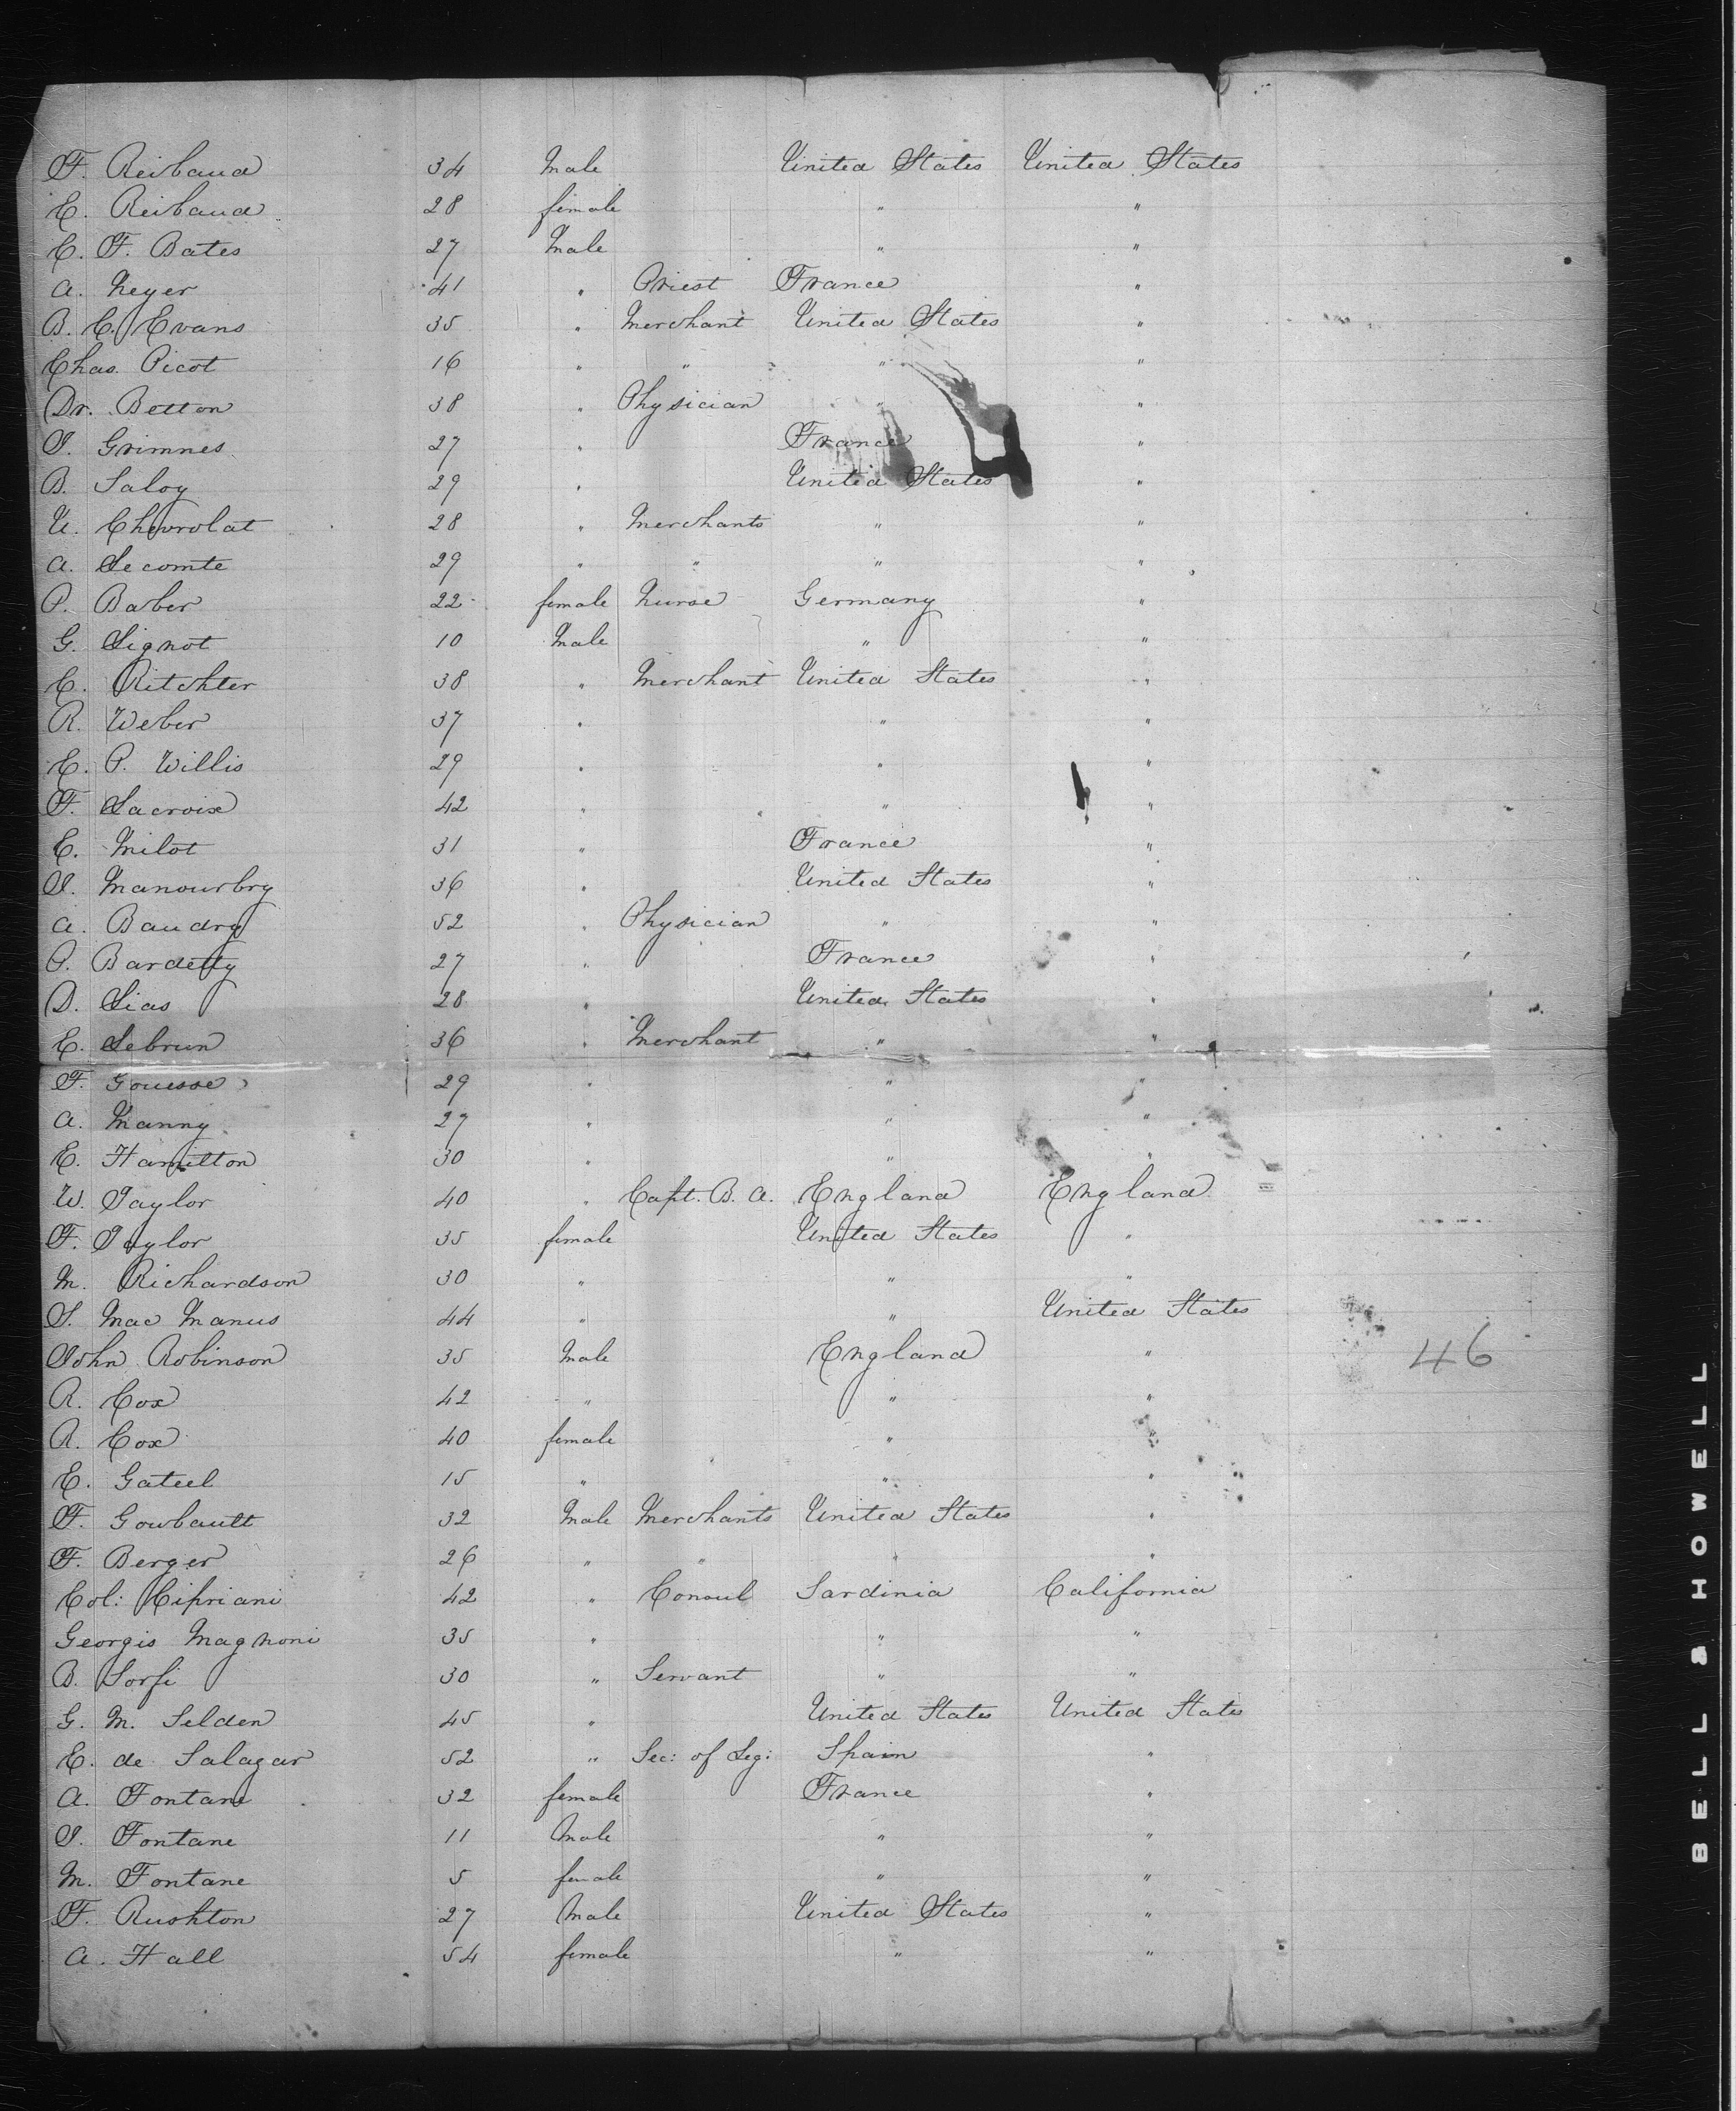 F. Reibaud 34 Male United States United States
E. Reibaud 28 female " "
C. F. Bates 27 Male " "
A. Neyer 41 " Priest France "
B. C. Evans 35 " Merchant United States "
Chas. Picot 16 " " " "
Dr. Betton 38 " Physician " "
J. Grimnes 27 " France "
B. Saloy 29 " United States "
U. Chevrolat 28 " Merchants " "
A. Lecomte 29 " " " "
P. Baber 22 female Nurse Germany "
G. Lignot 10 Male " "
C. Ritchter 38 " Merchant United States "
R. Weber 37 " " "
E. P. Willis 29 " " "
F. Lacroix 42 " " "
E. Milot 31 " France "
J. Manourbry 36 " United States "
A. Baudry 52 " Physician " "
P. Bardetty 27 " France "
D. Lias 28 " United States "
E. Lebrun 36 " Merchant " "
F. Gouesse 29 " " "
A. Manny 27 " " "
E. Hamilton 30 " " "
W. Taylor 40 " Capt. B. A. England England
F. Taylor 35 female United States "
M. Richardson 30 " " "
S. Mac Manus 44 " " United States
John Robinson 35 Male England "
46
R. Cox 42 " " "
R. Cox 40 female " "
E. Gateel 15 " " "
F. Gowbault 32 Male Merchants United States "
F. Berger 26 " " " "
Col: Cipriani 42 " Consul Sardinia California
Georgis Magnoni 35 " " "
B. Sorfi 30 " Servant " "
G. M. Selden 45 " United States United States
E. de Salazar 52 " Sec: of Leg: Spain "
A. Fontane 32 female France "
J. Fontane 11 Male " "
M. Fontane 5 female " "
F. Rushton 27 Male United States "
A. Hall 54 female " "
BELL & HOWELL